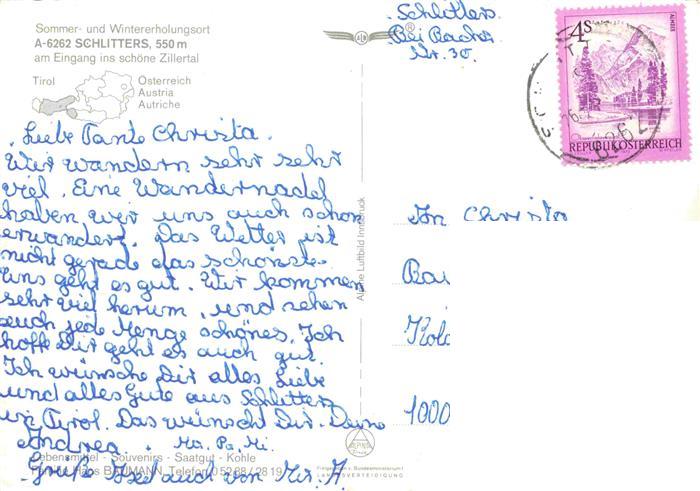 Sommer- und Wintererholungsort
A-6262 SCHLITTERS, 550 m
am Eingang ins schöne Zillertal
Tirol
Österreich
Austria
Autriche
Schlitters
Bei
Nr. 30
4 S
ALMSEE
REPUBLIK ÖSTERREICH
6262
Liebe Tante Christa.
Wir wandern sehr sehr
viel. Eine Wandernadel
haben wir uns auch schon
erwandert. Das Wetter ist
nicht gerade das schönste
Uns geht es gut. Wir kommen
sehr viel herum, und sehen
auch jede Menge schönes. Ich
hoffe Dir geht es auch gut.
Ich wünsche Dir alles Liebe
und alles Gute aus Schlitters
in Tyrol. Das wünscht Dir. Deine
Andrea. Ma. Pa. Mi.
Lebensmittel - Souvenirs - Saatgut - Kohle
Hans BAUMANN, Telefon 0 52 88 / 28 19
Grüße auch von
Alpine Luftbild Innsbruck
An Christa
1000
ALPINE
Freigegeben v. Bundesministerium f.
LANDESVERTEIDIGUNG